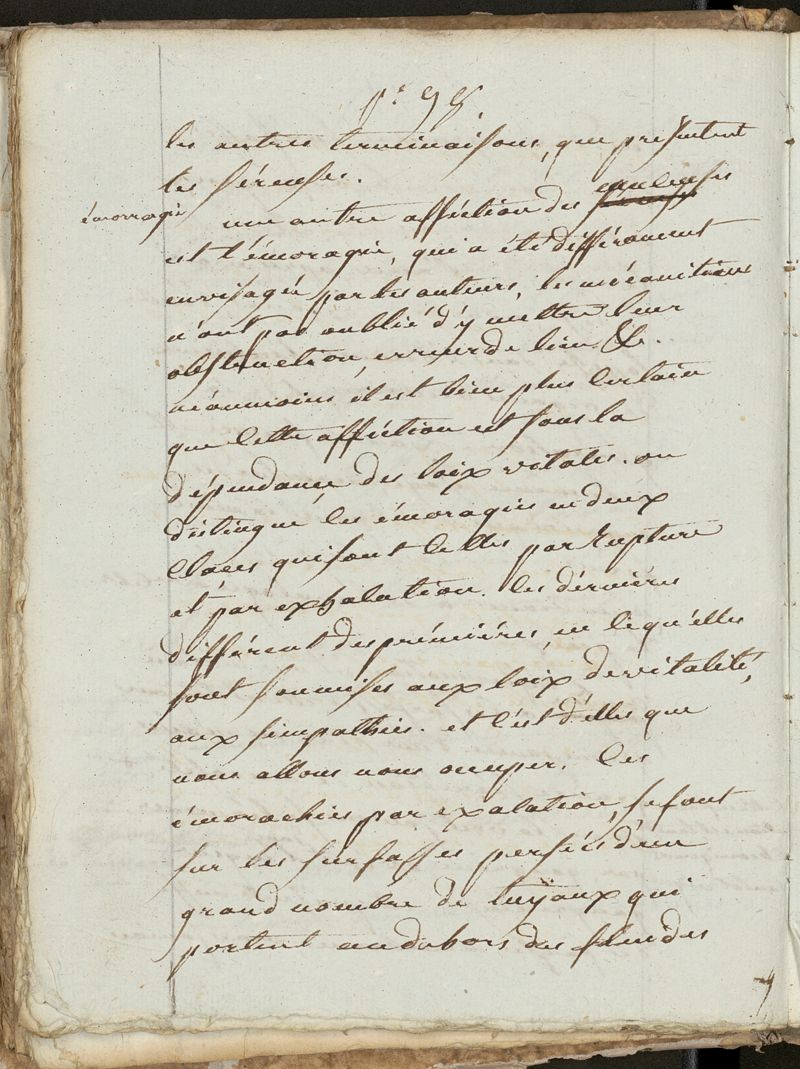 p.e 98
les autres terminaisons, que présentent
les séreuses.
émorragie
une autre affection des muqueuses
est l'émoragie, qui a été différament
envisagée par les auteurs, les mécanitiens
n'ont pas oublié d'y mettre leur
obstruction, erreur de lieu &c.
néanmoins il est bien plus certain
que cette affection est sous la
dépendance des loix vitales. on
distingue les émoragies en deux
claces qui sont celles par rupture
et par exhalation. les dérnières
différent des prémiéres, en ce qu'elles
sont soumises aux loix de vitalité,
aux simpathies. et c'est d'elles que
nous allons nous occuper. Ces
émorachies par exalation, se font
sur les surfasses persées d'un
grand nombre de tuyaux qui
portent au dehors des fluides